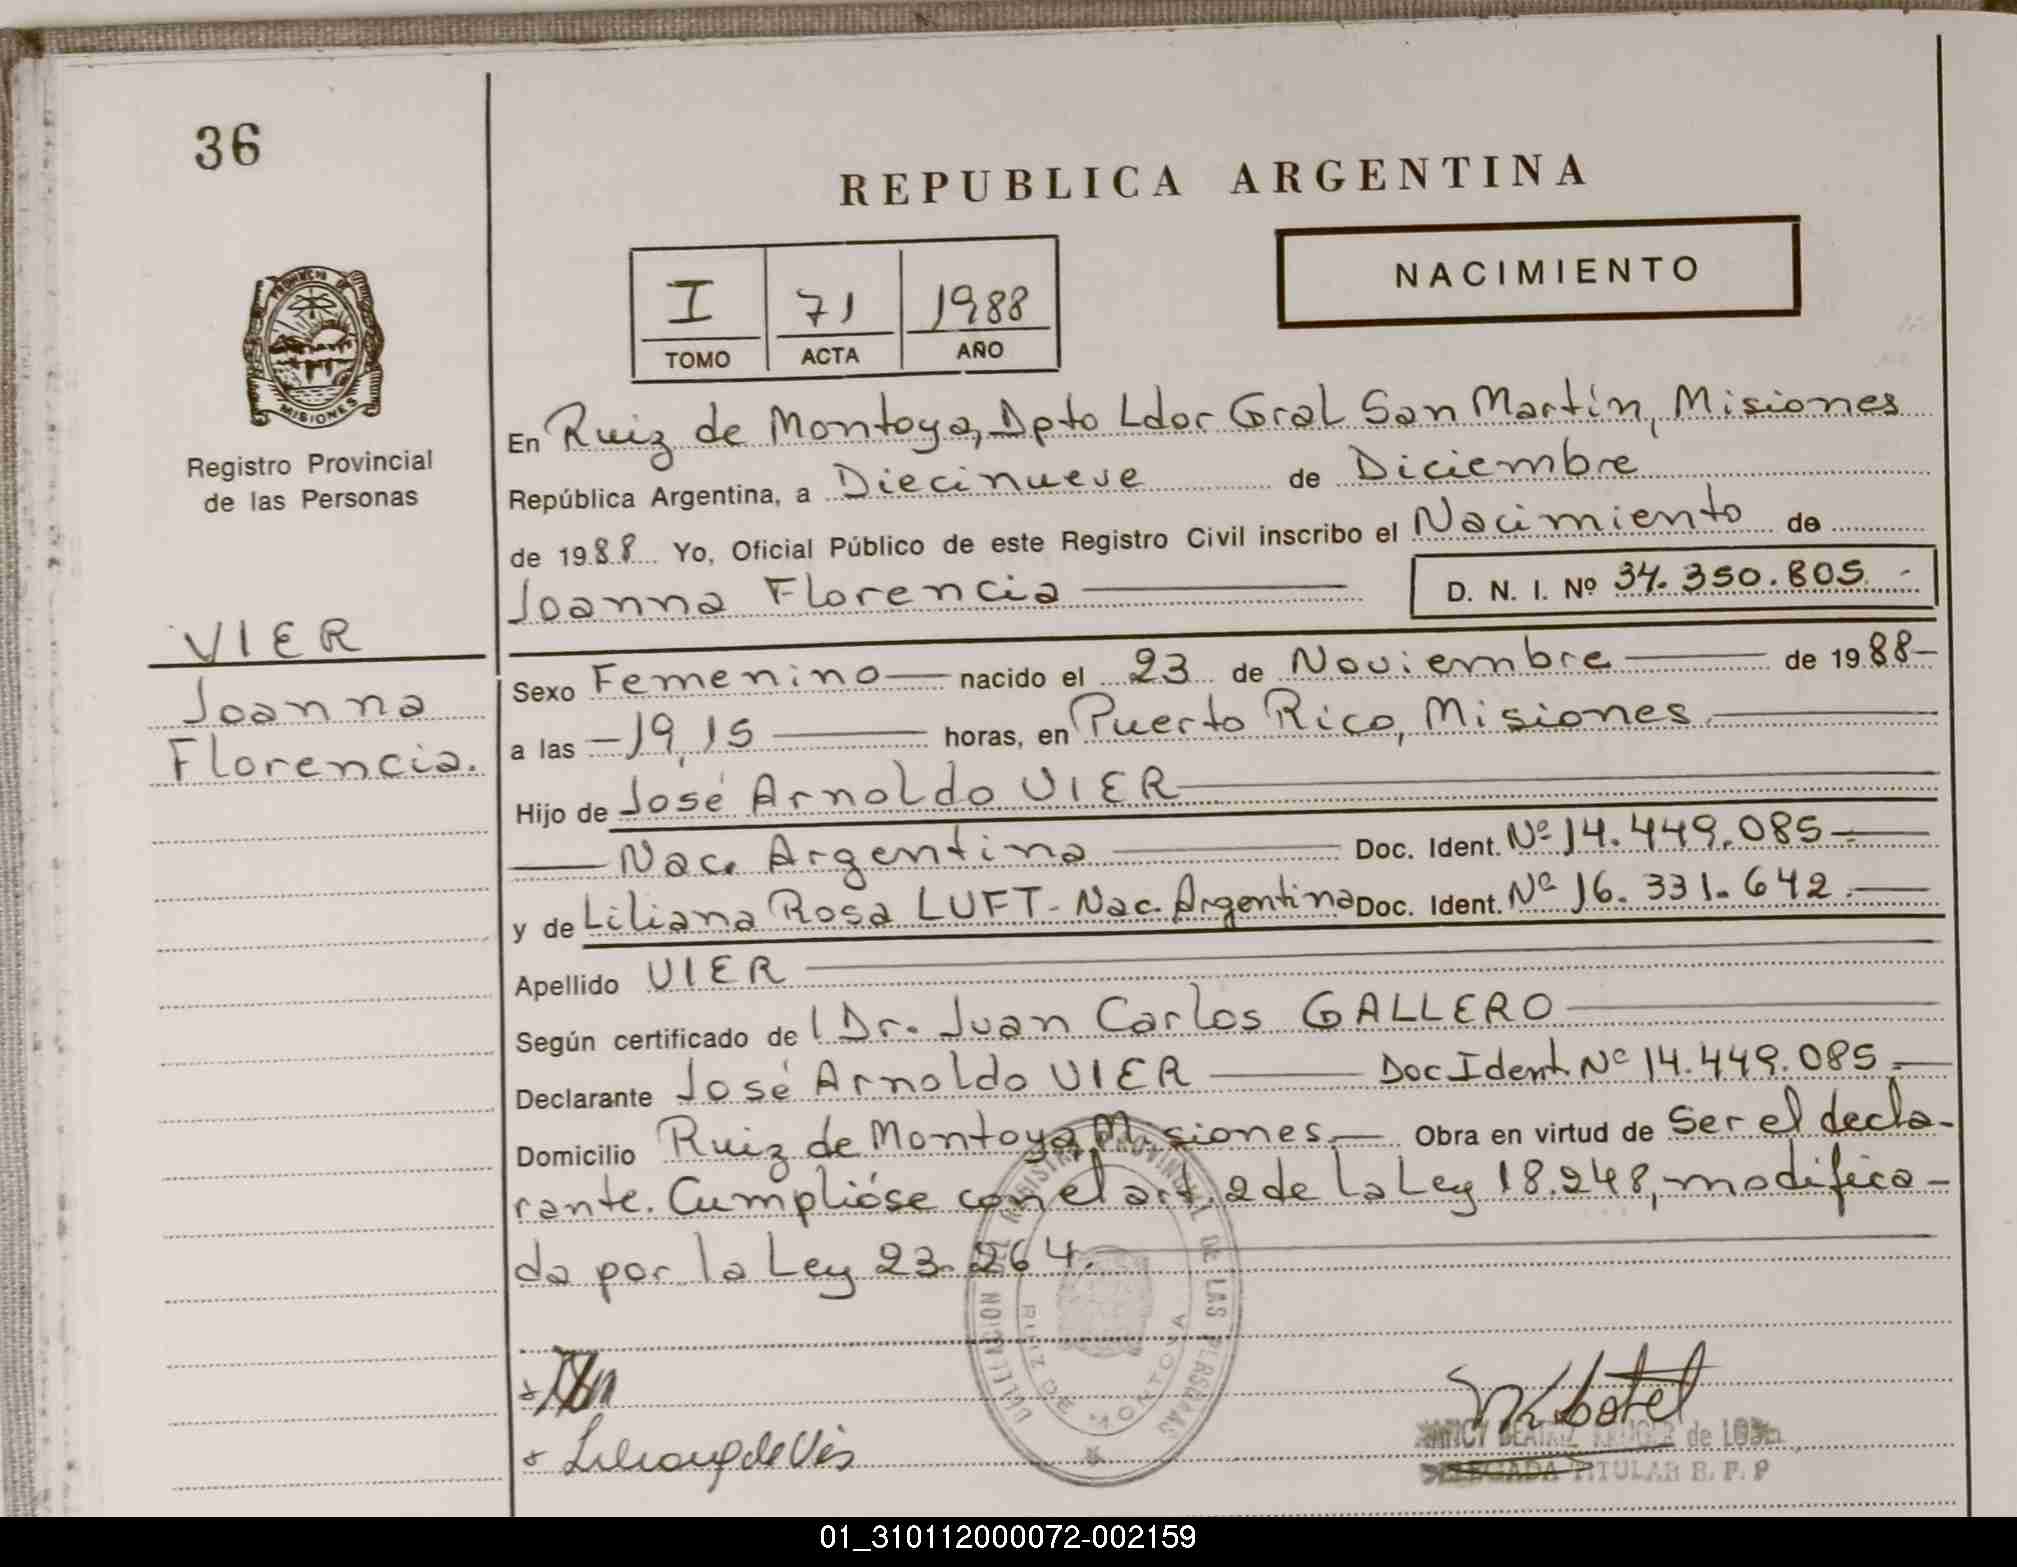 36
REPUBLICA ARGENTINA
NACIMIENTO
I 71 1988
TOMO ACTA AÑO
PROVINCIA DE
MISIONES
Registro Provincial
de las Personas
VIER
Joanna
Florencia.
En Ruiz de Montoya, Dpto Ldor Gral San Martín, Misiones
República Argentina, a Diecinueve de Diciembre
de 1988 Yo, Oficial Público de este Registro Civil inscribo el Nacimiento de
Joanna Florencia D. N. I. Nº 34.350.805.-
Sexo Femenino nacido el 23 de Noviembre de 1988-
a las -19,15 horas, en Puerto Rico, Misiones.
Hijo de José Arnoldo VIER
Nac. Argentina Doc. Ident. Nº 14.449.085-
y de Liliana Rosa LUFT- Nac. Argentina Doc. Ident. Nº 16.331.642.-
Apellido VIER
Según certificado de l Dr. Juan Carlos GALLERO
Declarante José Arnoldo VIER Doc Ident Nº 14.449.085.-
Domicilio Ruiz de Montoya, Misiones.- Obra en virtud de Ser el decla-
rante. Cumplióse con el art. 2 de la Ley 18.248, modifica-
da por la Ley 23.264.
DELEGACION DEL REGISTRO PROVINCIAL DE LAS PERSONAS
RUIZ DE MONTOYA
NANCY BEATRIZ KRUGER de
DELEGADA TITULAR R. P. P
01_310112000072-002159